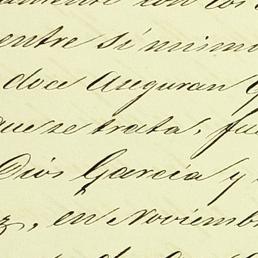 con los
entre sí mismo
doce aseguran
que se trata, fu
Dios García y
z, en Noviembr